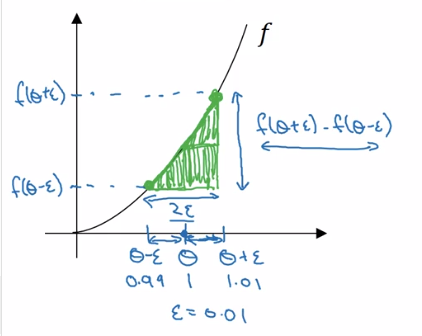 f
f(θ+ε)
f(θ+ε) - f(θ-ε)
f(θ-ε)
2ε
θ-ε θ θ+ε
0.99 1 1.01
ε = 0.01